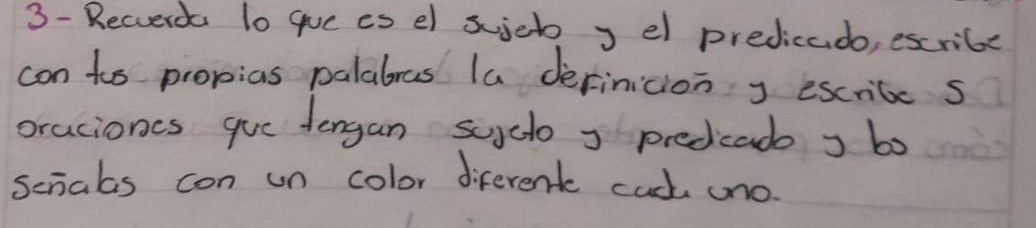 3- Recuerda lo que es el sujeto y el predicado, escribe
con tus propias palabras la definición y escribe 5
oraciones que tengan sujeto y predicado y los
señalas con un color diferente cada uno.